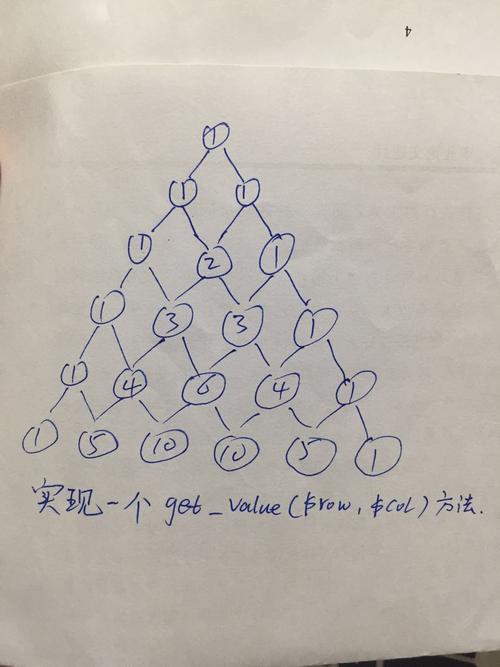 4
1
1 1
1 2 1
1 3 3 1
1 4 6 4 1
1 5 10 10 5 1
实现一个 get_value($row, $col) 方法.